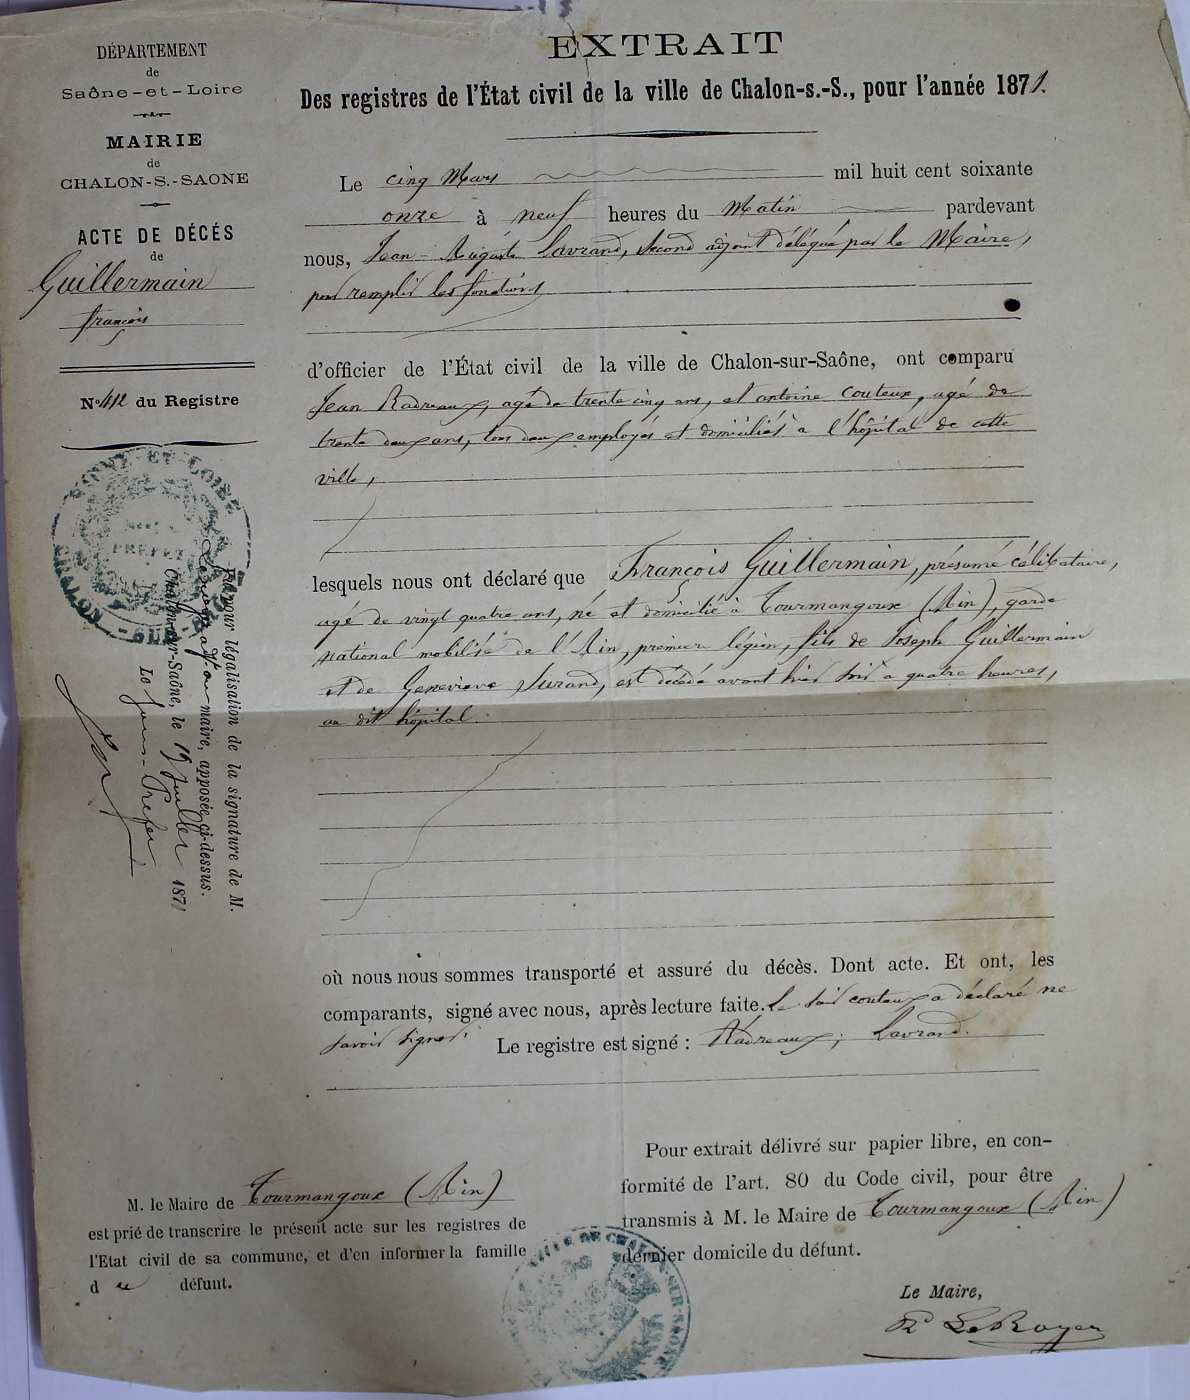 DÉPARTEMENT
de
Saône-et-Loire
MAIRIE
de
CHALON-S.-SAONE
ACTE DE DÉCÉS
de
Guillermain
françois
No 412 du Registre
EXTRAIT
Des registres de l'État civil de la ville de Chalon-s.-S., pour l'année 1871.
Le cinq Mars mil huit cent soixante
onze à neuf heures du Matin pardevant
nous, Jean-Auguste Lavrand, second adjoint délégué par le Maire,
pour remplir les fonctions
d'officier de l'État civil de la ville de Chalon-sur-Saône, ont comparu
Jean Radreaux, agé de trente cinq ans, et antoine Couteux, agé de
trente deux ans, tous deux employés et domiciliés à l'hôpital de cette
ville,
lesquels nous ont déclaré que François Guillermain, présumé célibataire,
agé de vingt quatre ans, né et domicilié à Tourmangoux (Ain), garde
national mobilisé de l'Ain, premier légion, fils de Joseph Guillermain
et de Genevieve Jurand, est décédé avant hier soir à quatre heures,
au dit hôpital.
où nous nous sommes transporté et assuré du décès. Dont acte. Et ont, les
comparants, signé avec nous, après lecture faite. Le dit couteux a déclaré ne
savoir signer. Le registre est signé : Radreaux; Lavrand.
SAONE-ET-LOIRE
SOUS PRÉFET
CHALON-SUR-SAONE
Vu pour légalisation de la signature de M.
maire, apposée ci-dessus.
Chalon-sur-Saône, le 19 Juillet 1871
Le Sous-Préfet
M. le Maire de Tourmangoux (Ain)
est prié de transcrire le présent acte sur les registres de
l'Etat civil de sa commune, et d'en informer la famille
d u défunt.
Pour extrait délivré sur papier libre, en con-
formité de l'art. 80 du Code civil, pour être
transmis à M. le Maire de Tourmangoux (Ain)
dernier domicile du défunt.
VILLE DE CHALON-SUR-SAONE
Le Maire,
LeRoyer